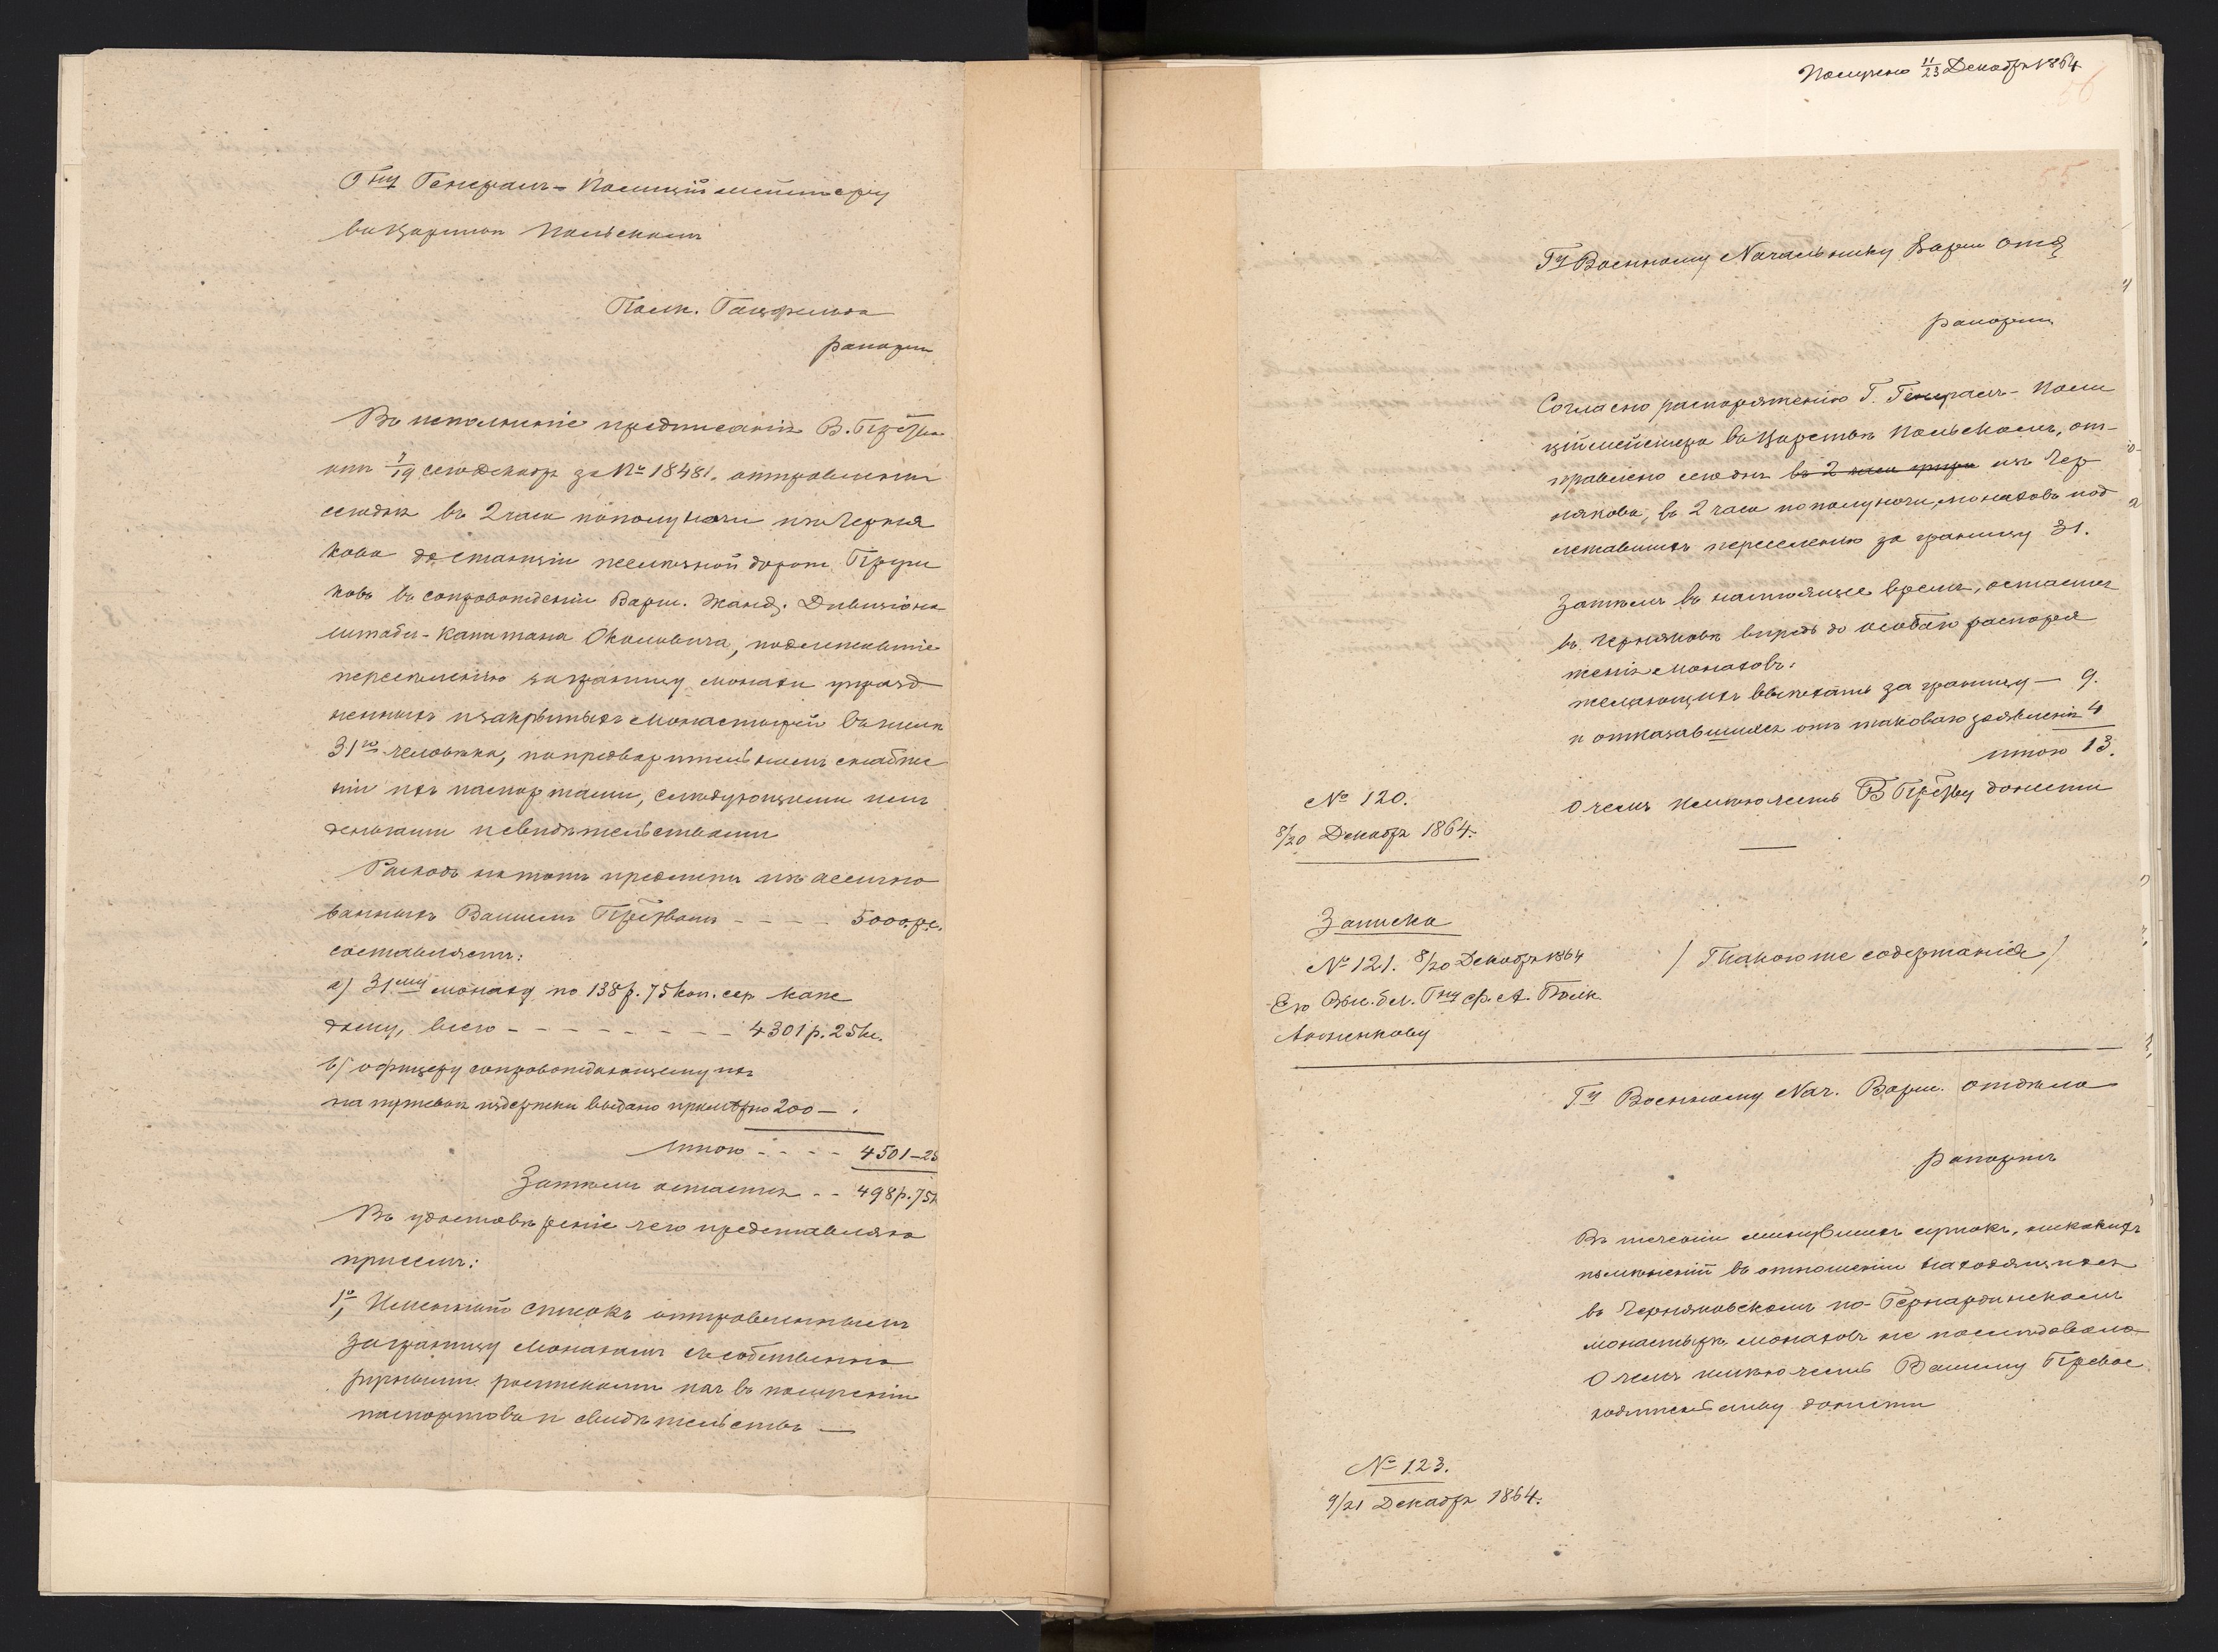 Гну Генералъ-Полиційместеру
въ Царствѣ Польскомъ
Полк.
рапортъ
Въ исполненіе предписанія В. Прев.
отъ 7/19 сего Декабр за № 18481. отправлены
сегодня въ 2 часа пополуночи изъ Черня
кова до станціи желѣзной дороги Пруш
ковъ въ сопровожденіи Варш. Жанд. Дивизіона
штабсъ-Капитана Околовича, подлежавшіе
переселенію заграницу монахи упразд
ненныхъ и закрытыхъ монастырей въ числѣ
31го человѣка, по предварительномъ снабже
ніи ихъ паспортами, слѣдующими имъ
деньгами и свидѣтельствами
Расходъ на этотъ предметъ изъ ассигно
ванныхъ Вашимъ Прев-вомъ - - - - 5000 р.с.
составляетъ:
а) 31му монаху по 138 р. 75 коп. сер. каж
дому, всего - - - - - - - - 4301 р. 25 к.
b) офицеру сопровождающему ихъ
на путевыя издержки выдано примѣрно 200 —.
итого - - - - 4501—25
Затѣмъ остается - - 498 р. 75 к
Въ удостовѣреніе чего представляю
присемъ:
1о, Именный списокъ отправленнымъ
заграницу Монахамъ съ собственно
ручными росписками ихъ въ полученіи
паспортовъ и свидѣтельствъ —
Получено 11/23 Декабря 1864
56
55
Гу Военному Начальнику Варш Отд
рапортъ
Согласно распоряженію Г. Генералъ-Поли
ційместера въ Царствѣ Польскомъ, от-
правлено сегодня въ 2 часа изъ Чер
някова, въ 2 часа пополуночи, монаховъ под
лежавшихъ переселенію за границу 31.
Затѣмъ въ настоящее время, остается
въ Черняковѣ впредь до особаго распоря
женія Монаховъ:
желающихъ выѣхать за границу — 9.
и отказавшихся отъ таковаго заявленія 4
итого 13.
О чемъ имѣю честь В Прев-ву донести
№ 120.
8/20 Декабр 1864.
Записка
№ 121. 8/20 Декабря 1864
/ Такого же содержанія /
Его Выс. бл. Гну Ф. А. Полк.
Анненкову
Гу Военному Нач. Варш. отдѣла
рапортъ
Въ теченіи минувшихъ сутокъ, никакихъ
измѣненій въ отношеніи находящихся
въ Черняковскомъ по-Бернардинскомъ
монастырѣ, монаховъ не послѣдовало
О чемъ имѣю честь Вашему Превос
ходительству донести
№ 123.
9/21 Декабр 1864.